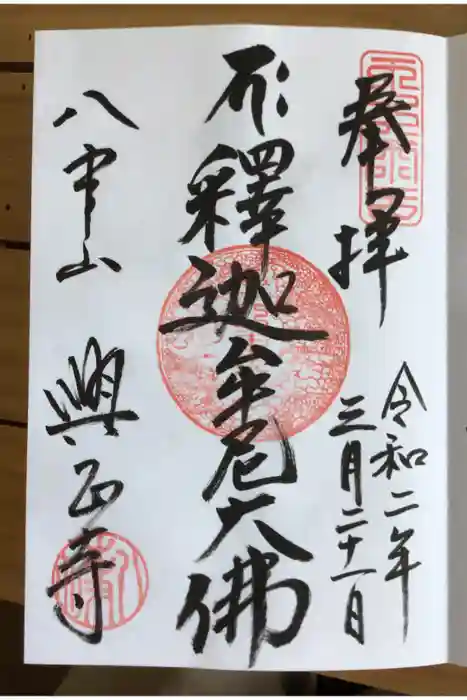 奉拝
令和二年
三月二十一日
釋迦牟尼大佛
八事山 興正寺